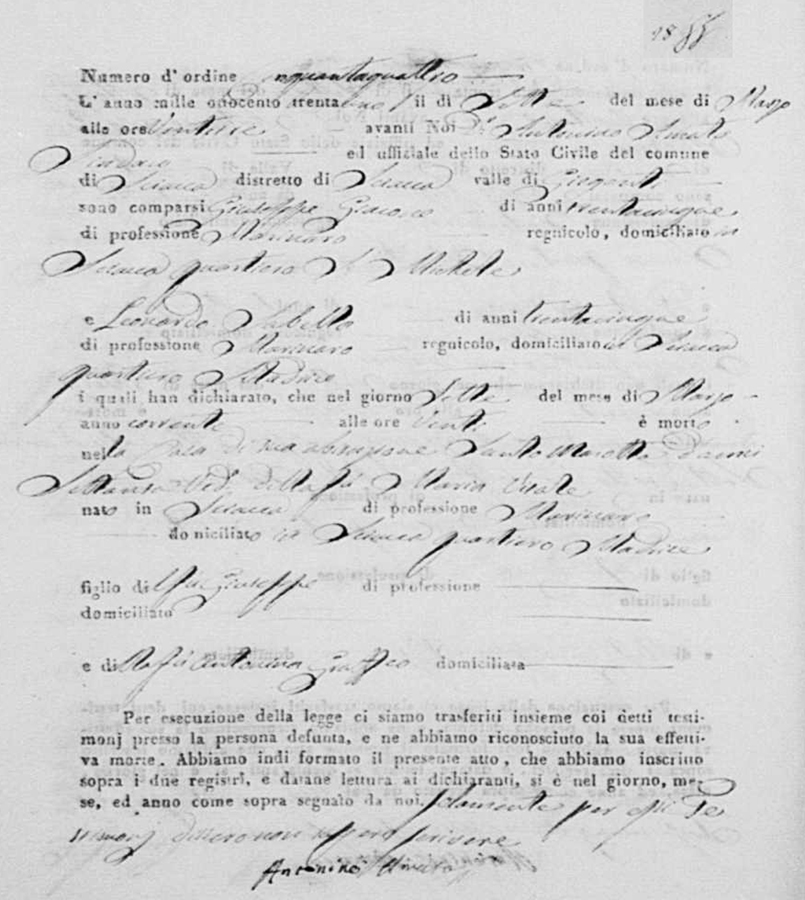 Numero d'ordine nquantaquattro
L'anno mille ottocento trentauno il di Sette del mese di Marzo
alle ore Ventitre avanti Noi Antonino
ed uffiziale dello Stato Civile del comune
di Sciacca distretto di Sciacca valle di Girgenti
sono comparsi Giuseppe di anni trentacinque
di professione Marinaro regnicolo, domiciliato in
Sciacca quartiero S. Michele
e Leonardo Sabella di anni trentacinque
di professione Marinaro regnicolo, domiciliato in Sciacca
quartiero Madrice
i quali han dichiarato, che nel giorno Sette del mese di Marzo
anno corrente alle ore Venti è morto
nella Casa di sua abitazione Santo Marotta d'anni
Settanta Ved. della fu Maria
nato in Sciacca di professione Marinaro
domiciliato in Sciacca quartiero Madrice
figlio di fu Giuseppe di professione
domiciliato
e di fu Antonina domiciliata
Per esecuzione della legge ci siamo trasferiti insieme coi detti testi-
monj presso la persona defunta, e ne abbiamo riconosciuto la sua effetti-
va morte. Abbiamo indi formato il presente atto, che abbiamo inscritto
sopra i due registri, e datane lettura ai dichiaranti, si è nel giorno, me-
se, ed anno come sopra segnato da noi, solamente per essi Te
stimonj dissero non sapere scrivere
Antonino